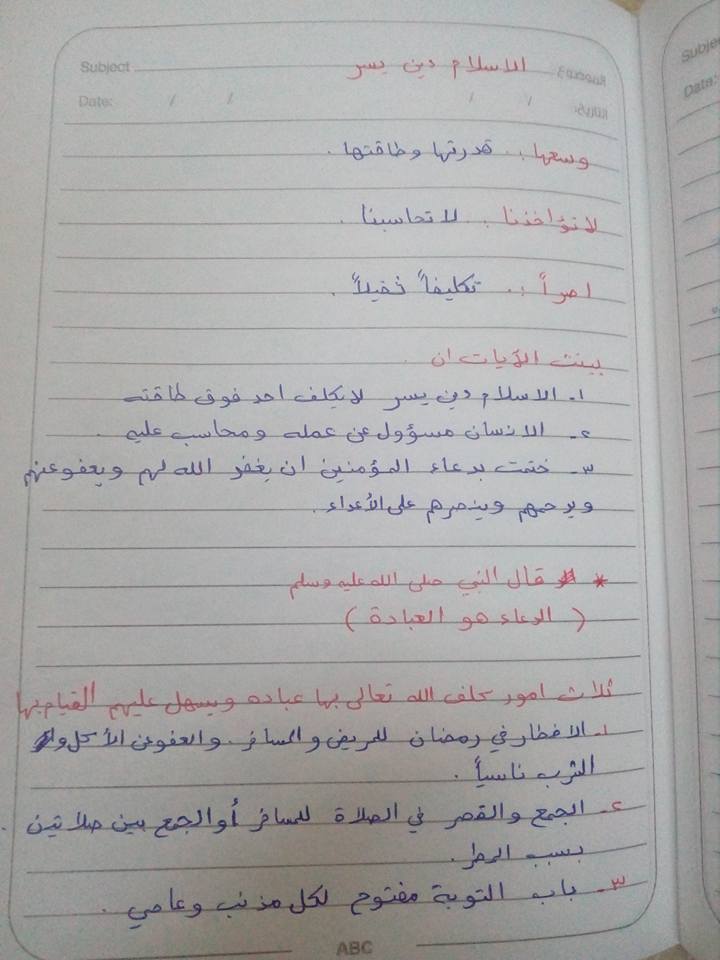 Subject الاسلام دين يسر الموضوع
Date: / / / / التاريخ:
وسعها : قدرتها وطاقتها .
لا تؤاخذنا : لا تحاسبنا .
اصراً : تكليفاً ثقيلاً .
بينت الآيات ان
١- الاسلام دين يسر لا يكلف احد فوق طاقته
٢- الانسان مسؤول عن عمله ومحاسب عليه .
٣- ختمت بدعاء المؤمنين ان يغفر الله لهم ويعفو عنهم
ويرحمهم وينصرهم على الأعداء .
* قال النبي صلى الله عليه وسلم
( الدعاء هو العبادة )
ثلاث امور كلف الله تعالى بها عباده ويسهل عليهم القيام بها
١- الافطار في رمضان للمريض والمسافر . والعفو عن الأكل و
الشرب ناسياً .
٢- الجمع والقصر في الصلاة للمسافر أو الجمع بين صلاتين
بسبب المطر .
٣- باب التوبة مفتوح لكل مذنب وعاصي .
ABC
Subje
Date: